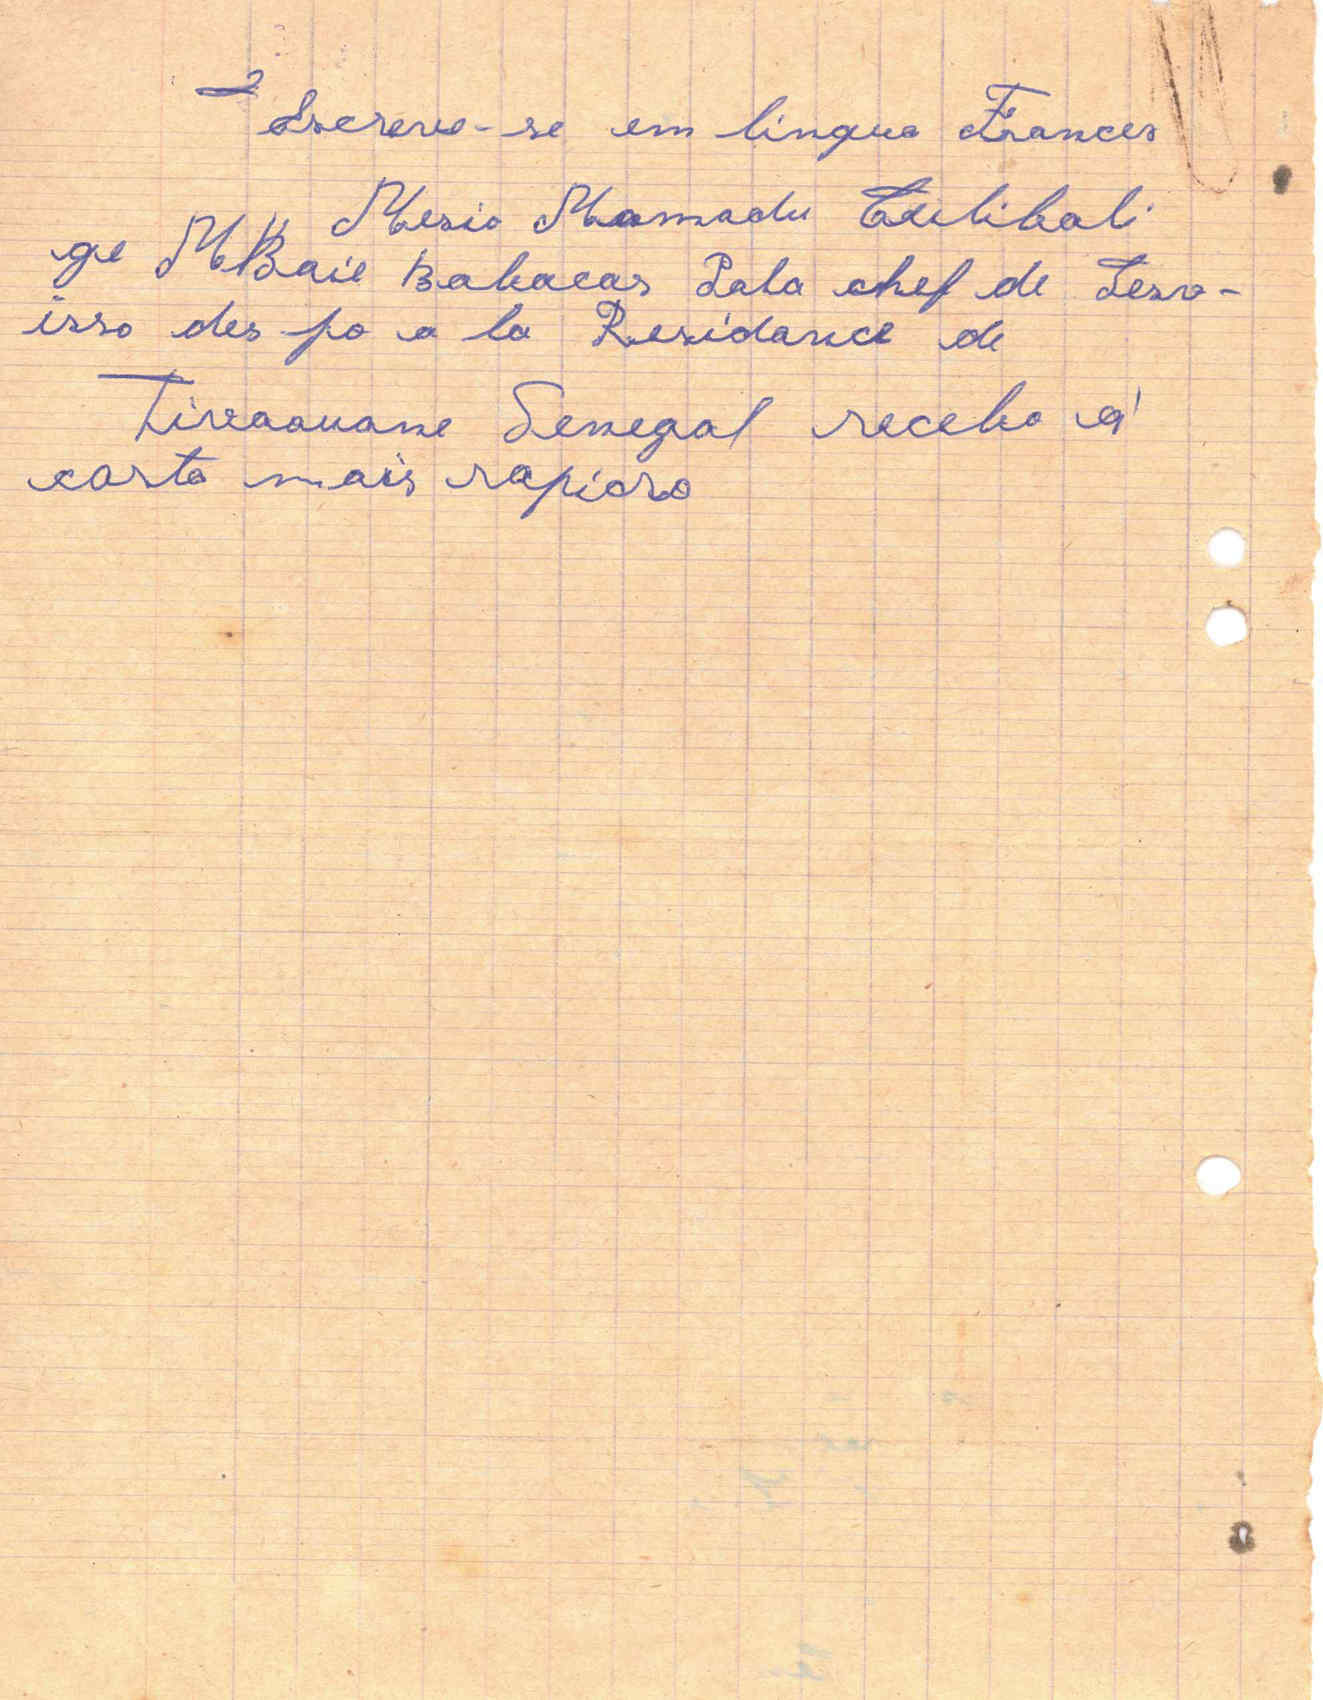 2
Escreve-se em lingua Frances
Mesio Mamadu Culibali
ge M'Baie Babacar Pala chef de Serv-
isso des po a la Residance de
Tivaouane Senegal recebo a'
carta mais rapidro